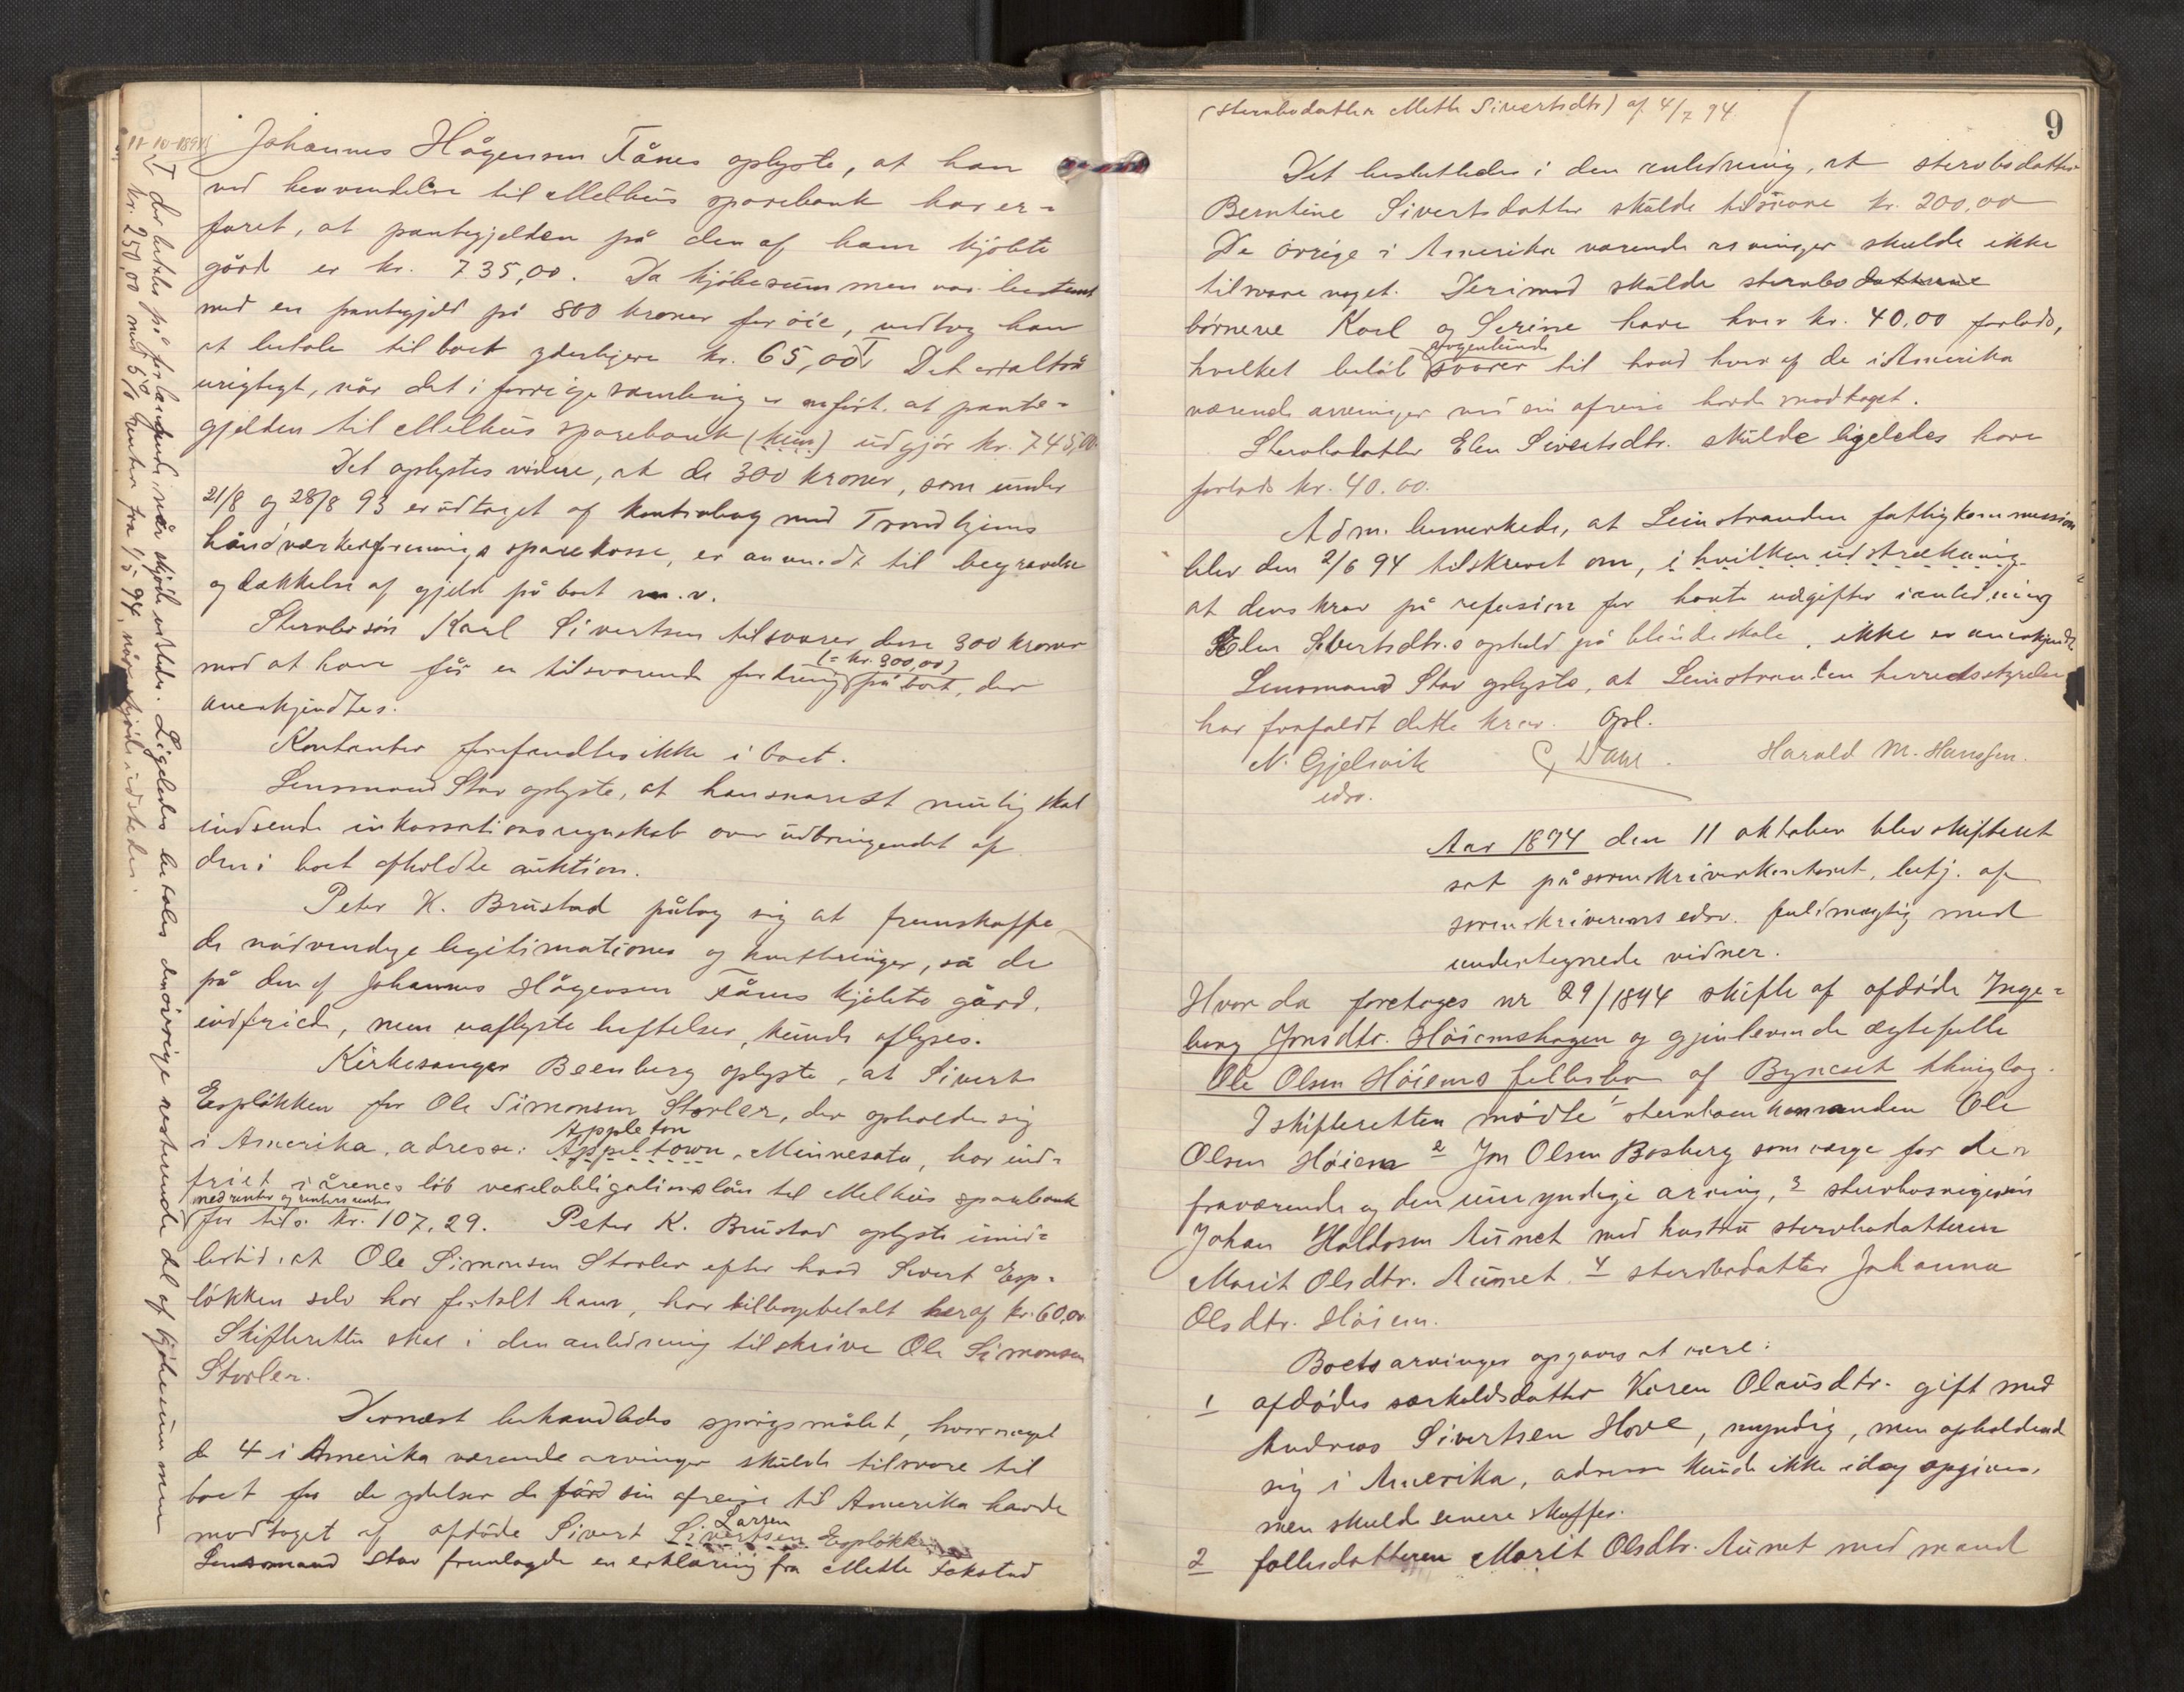 11-10-1894
Johannes Hågensen Fånes oplyste, at han
ved henvendelse til Melhus sparebank har er-
faret, at pantegjelden på den af ham kjøbte
gård er kr. 735,00. Da kjøbesummen var bestemt
med en pantegjeld på 800 kroner for øie, vedtog han
at betale til boet yderligere kr. 65,00 Det er altså
urigtigt, når det i forrige samling er anført, at pante-
gjelden til Melhus sparebank (kun) udgjør kr. 745,00.
Det oplystes videre, at de 300 kroner, som under
21/8 og 28/8 93 er udtaget af kontrabog med Trondhjems
håndværkerforenings sparekasse, er anvendt til begravelse
og dækkelse af gjeld på boet m.v.
Stervbosøn Karl Sivertsen tilsvarer disse 300 kroner
mod at han får en tilsvarende fordring (= kr. 300,00) på boet, der
anerkjendtes.
Kontanter forefandtes ikke i boet.
Lensmand Stav oplyste, at han snarest mulig skal
indsende inkassationsregnskab over udbringendet af
den i boet afholdte auktion.
Peter K. Brustad påtog sig at fremskaffe
de nødvendige legitimationer og kvitteringer, så de
på den af Johannes Hågensen Fånes kjøbte gård,
indfriede, men uaflyste heftelser, kunde aflyses.
Kirkesanger Beenberg oplyste, at Sivert
Espløkken for Ole Simonsen Storler, der opholder sig
i Amerika, adresse: Appeltown Appleton, Minnesota, har ind-
friet i årenes løb vexelobligationslån til Melhus sparebank
med renter og renters renter
for tils. kr. 107,29. Peter K. Brustad oplyste imid-
lertid, at Ole Simonsen Storler efter hvad Sivert Esp-
løkken selv har fortalt ham, har tilbagebetalt heraf kr. 60,00
Skifteretten skal i den anledning tilskrive Ole Simonsen
Storler.
Dernæst behandledes spørgsmålet, hvor meget
de 4 i Amerika værende arvinger skulde tilsvare til
boet for de ydelser de før sin afreise til Amerika havde
modtaget af afdøde Sivert Sivertsen Larsen Espløkken
Lensmand Stav fremlagde en erklæring fra Mette Fokstad
der betales på forlangende, når skjøde udstedes. Ligeledes betales den øvrige resterende del af kjøbesummen
kr. 250,00 med 5% renter fra 1/5 94, når skjøde udstedes.
9
(stervbodatter Mette Sivertsdtr) af 4/7 94.
Det besluttedes i den anledning, at stervbodatter
Berntine Sivertsdatter skulde tilsvare kr. 200,00
De øvrige i Amerika værende arvinger skulde ikke
tilsvare noget. Derimod skulde stervbodatterne
børnene Karl og Serine have hver kr. 40,00 forlods,
hvilket beløb svarer nogenlunde til hvad hver af de i Amerika
værende arvinger ved sin afreise havde modtaget.
Stervbodatter Elen Sivertsdtr. skulde ligeledes have
forlods kr. 40.00.
Adm. bemerkede, at Leinstranden fattigkommission
blev den 2/6 94 tilskrevet om, i hvilken udstrækning
at dens krav på refusion for havte udgifter i anledning
Elen Sivertsdtr.s ophold på blindeskole, ikke er anerkjendt
Lensmand Stav oplyste, at Leinstranden herredsstyrelse
har frafaldt dette krav. Opl.
N. Gjelsvik Dahl. Harald M. Hanssen.
edsv.
Aar 1894 den 11 oktober blev skifteret
sat på sorenskriverkontoret, betj. af
sorenskriverens edsv. fuldmægtig med
undertegnede vidner.
Hvor da foretoges nr 29/1894 skifte af afdøde Inge-
borg Jonsdtr. Høiemshagen og gjenlevende ægtefelle
Ole Olsen Høiems fellesbo af Byneset thinglag.
I skifteretten mødte 1 stervboenkemanden Ole
Olsen Høiem 2 Jon Olsen Bosberg som værge for den
fraværende og den umyndige arving, 3 stervbosvigersøn
Johan Haldosen Aunet med hustru stervbodatteren
Marit Olsdtr. Aunet. 4 stervbodatter Johanna
Olsdtr. Høiem.
Boets arvinger opgaves at være:
1 afdødes særkuldsdatter Karen Olausdtr. gift med
Andreas Sivertsen Hove, myndig, men opholdend
sig i Amerika, adresse kunde ikke idag opgives,
men skulde senere skaffes.
2 fellesdatteren Marit Olsdtr. Aunet med mand